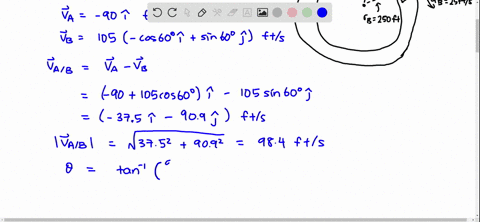 V⃗A = -90 î f
V⃗B = 105 (-cos60° î + sin60° ĵ) ft/s
V⃗A/B = V⃗A - V⃗B
= (-90 + 105cos60°) î - 105 sin60° ĵ
= (-37.5 î - 90.9 ĵ) ft/s
|V⃗A/B| = √37.5² + 90.9² = 98.4 ft/s
θ = tan⁻¹ (
rB = 250 ft